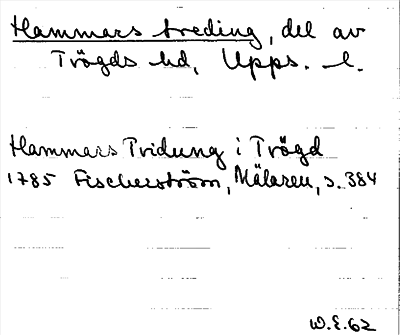 Hammars treding, del av
Trögds hd, Upps. l.
Hammars Tridung i Trögd
1785 Fischerström, Mälaren, s. 384
W.E. 62